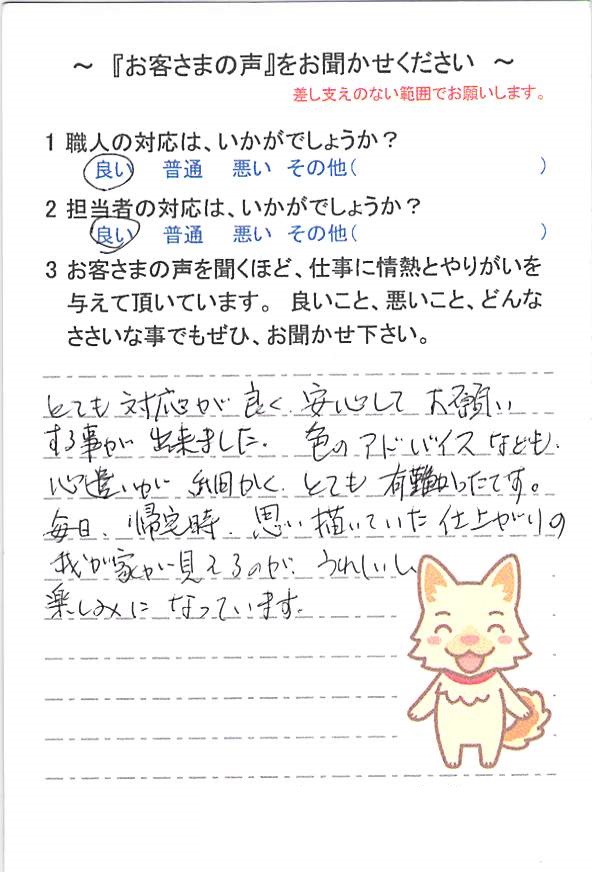 ～ 『お客さまの声』をお聞かせください ～
差し支えのない範囲でお願いします。
1 職人の対応は、いかがでしょうか？
良い 普通 悪い その他（ ）
2 担当者の対応は、いかがでしょうか？
良い 普通 悪い その他（ ）
3 お客さまの声を聞くほど、仕事に情熱とやりがいを
与えて頂いています。 良いこと、悪いこと、どんな
ささいな事でもぜひ、お聞かせ下さい。
とても対応が良く、安心してお願い
する事が出来ました。 色のアドバイスなども、
心遣いが細かく、とても有難かったです。
毎日、帰宅時、思い描いていた仕上がりの
我が家が見えるのが、うれしいし、
楽しみになっています。